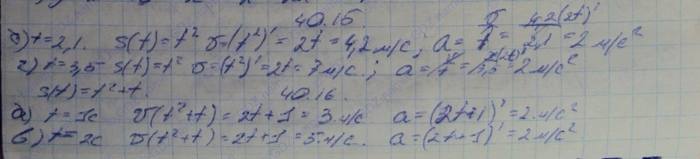 40.15.
б) t=2,1. s(t)=t² υ=(t²)'=2t=4,2м/с; a= =2м/с²
г) t=3,5 s(t)=t² υ=(t²)'=2t=7м/с.; a= =2м/с²
s(t)=t²+t. 40.16.
а) t=1с υ(t²+t)=2t+1=3м/с a=(2t+1)'=2м/с²
б) t=2с υ(t²+t)=2t+1=5м/с. a=(2t+1)'=2м/с²